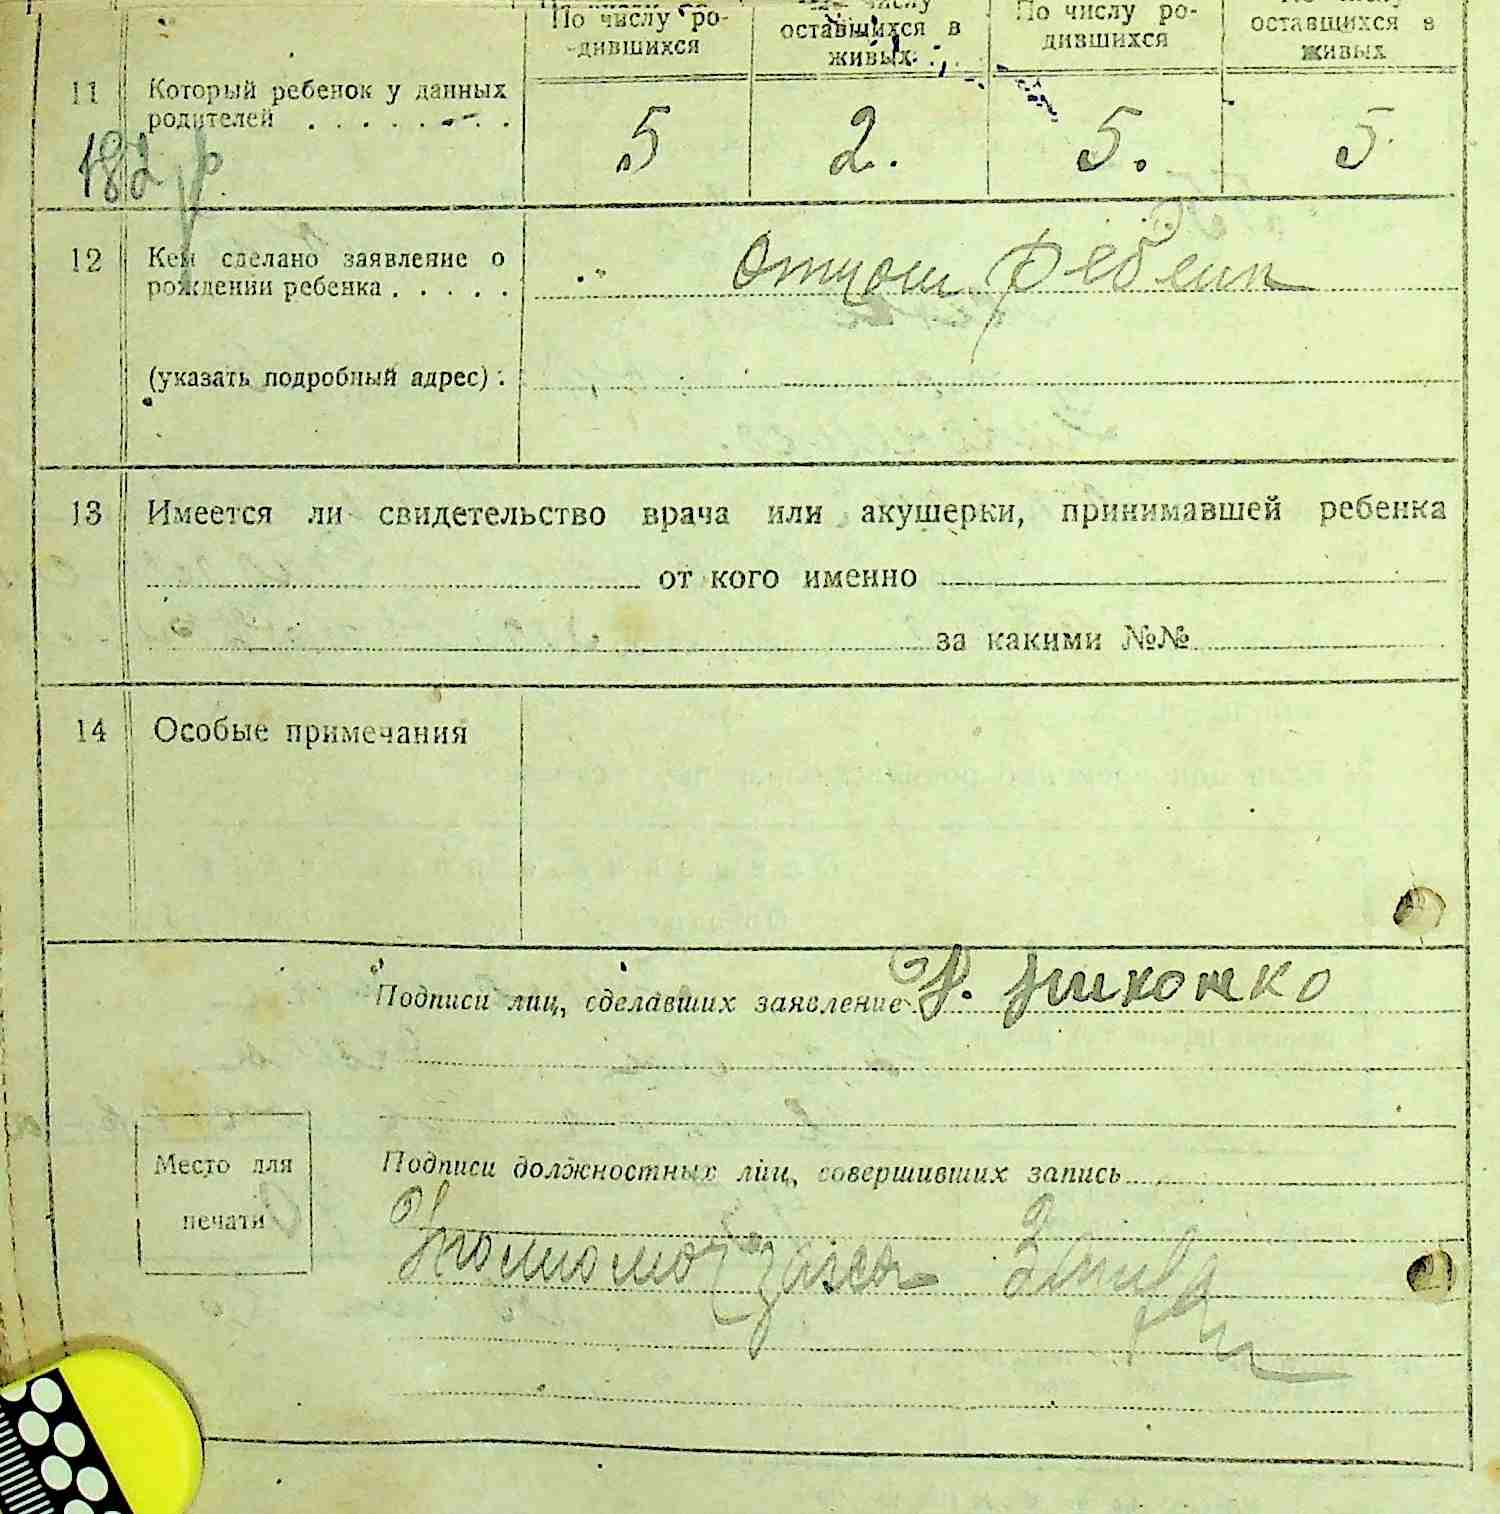 По числу ро-
дившихся
По числу
оставшихся в
живых
По числу ро-
дившихся
По числу
оставшихся в
живых
11 Который ребенок у данных
родителей . . . . . . . .
5 2. 5. 5
182 р
12 Кем сделано заявление о
рождении ребенка . . . . .
Отцом
(указать подробный адрес) .
13 Имеется ли свидетельство врача или акушерки, принимавшей ребенка
от кого именно
за какими №№
14 Особые примечания
Подписи лиц, сделавших заявление
Место для
печати
Подписи должностных лиц, совершивших запись